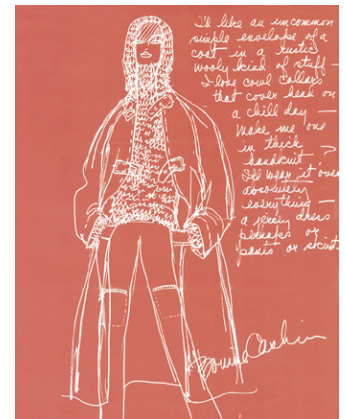 I'd like an uncommon
simple envelope of a
coat in a rustic
wooly kind of stuff —
I love cowl collars
that cover head on
a chill day —
make me one
in thick
handknit — ?
I'll wear it over
absolutely
everything —
a jersey dress
perhaps or
pants or skirt
Bonnie Cashin